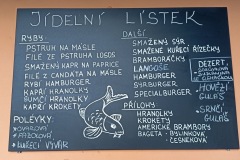 JÍDELNÍ LÍSTEK
RYBY:
PSTRUH NA MÁSLE
FILÉ ZE PSTRUHA LOSOS
SMAŽENÝ KAPR NA PAPRICE
FILÉ Z CANDÁTA NA MÁSLE
RYBÍ HAMBURGER
KAPŘÍ HRANOLKY
SUMČÍ HRANOLKY
KAPŘÍ KROKETY
POLÉVKY:
KUŘECÍ VÝVAR
DALŠÍ
SMAŽENÝ SÝR
SMAŽENÉ KUŘECÍ ŘÍZEČKY
BRAMBORÁČKY
LANGOŠE
HAMBURGER
SÝRBURGER
SPECIALBURGER
PŘÍLOHY:
HRANOLKY
KROKETY
AMERICKÉ BRAMBORY
BAGETA - BYLINKOVÁ
ČESNEKOVÁ
DEZERT
HOVĚZÍ
GULÁŠ
SRNČÍ
GULÁŠ